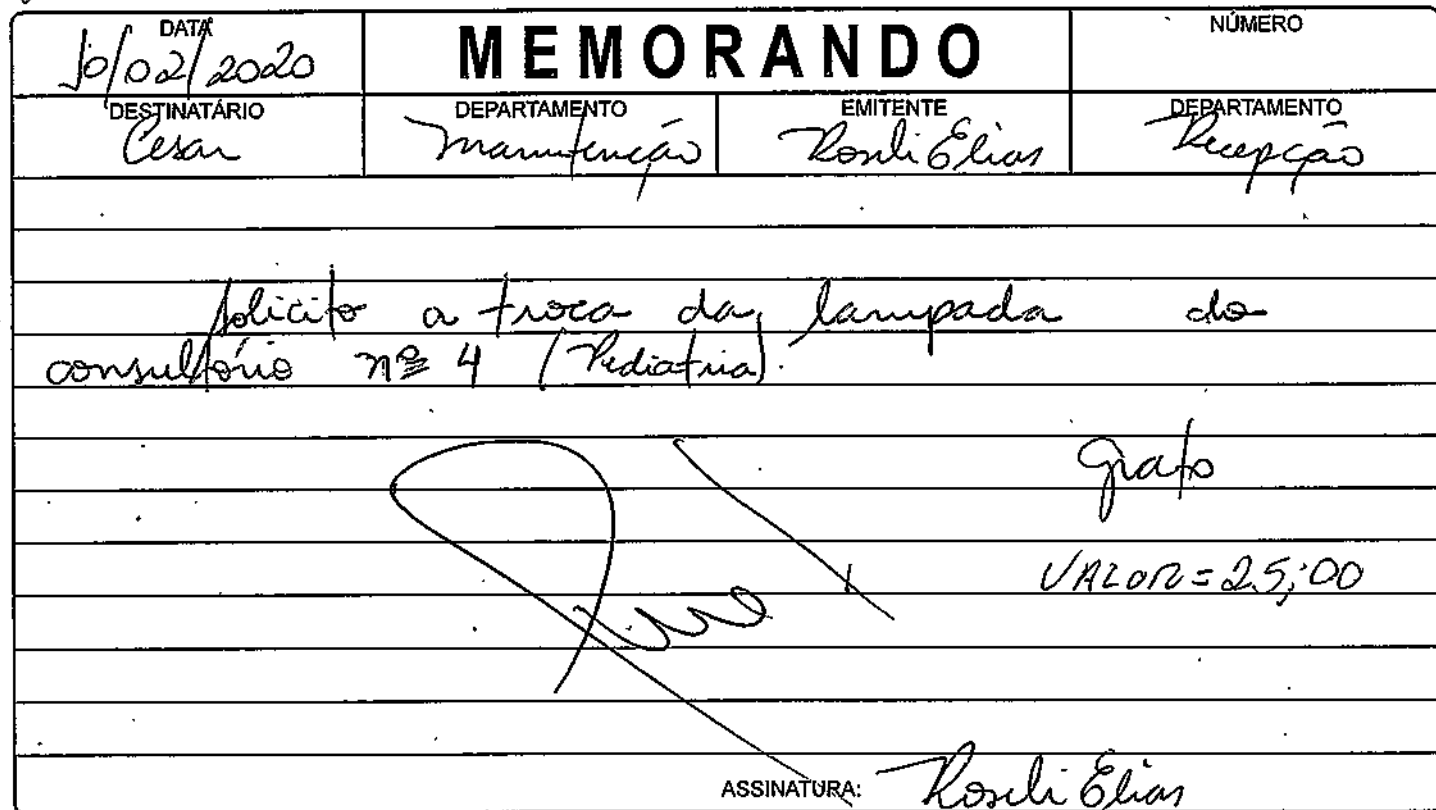 DATA
10/02/2020
MEMORANDO
NÚMERO
DESTINATÁRIO
Cesar
DEPARTAMENTO
Manutenção
EMITENTE
Roseli Elias
DEPARTAMENTO
Recepção
Solicito a troca da lampada do
consultório nº 4 (Pediatria).
Grato
VALOR = 25,00
ASSINATURA: Roseli Elias